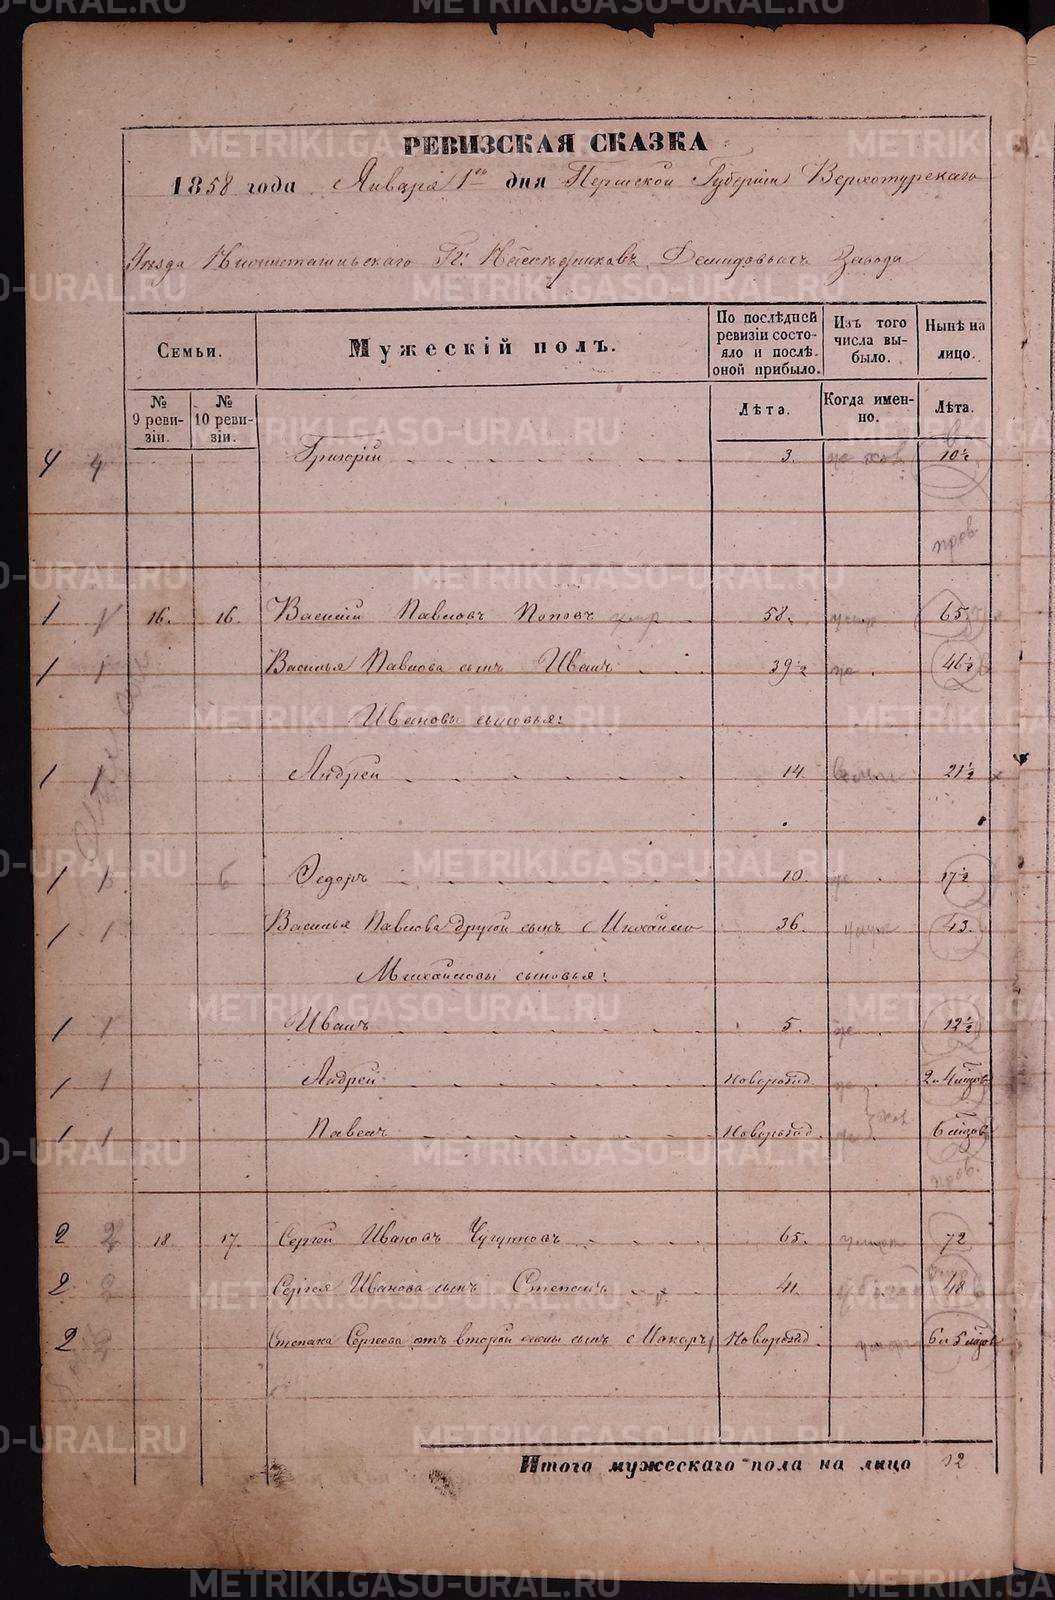 РЕВИЗСКАЯ СКАЗКА
1858 года Января 1го дня Пермской Губерніи Верхотурскаго
Уѣзда Нижнетагильскаго Гг: Наслѣдниковъ Демидовыхъ Завода
Семьи. Мужескій полъ. По послѣдней ревизіи состояло и послѣ оной прибыло. Изъ того числа выбыло. Нынѣ на лицо.
№ 9 ревизіи. № 10 ревизіи. Лѣта. Когда именно. Лѣта.
4 4 Григорій 3. 10½
пров.
1 1 16. 16. Василій Павловъ Поповъ 58. 65
1 1 Василья Павлова сынъ Иванъ 39½ 46½
Ивановы сыновья:
1 1 Андрей 14. 21½
1 1 6 Ѳедоръ 10. 17½
1 1 Василья Павлова другой сынъ Михайло 36. 43.
Михайловы сыновья:
1 1 Иванъ 5. 12½
1 1 Андрей Новорожд. 2 и 4 мѣсяц.
1 1 Павелъ Новорожд. 6 мѣсяц.
пров.
2 2 18. 17. Сергей Ивановъ Чугуновъ 65. 72
2 2 Сергея Иванова сынъ Степанъ 41. 48
2 2 Степана Сергеева отъ второй жены сынъ Макаръ Новорожд. 6 и 5 мѣсяц.
Итого мужескаго пола на лицо 12
METRIKI.GASO-URAL.RU